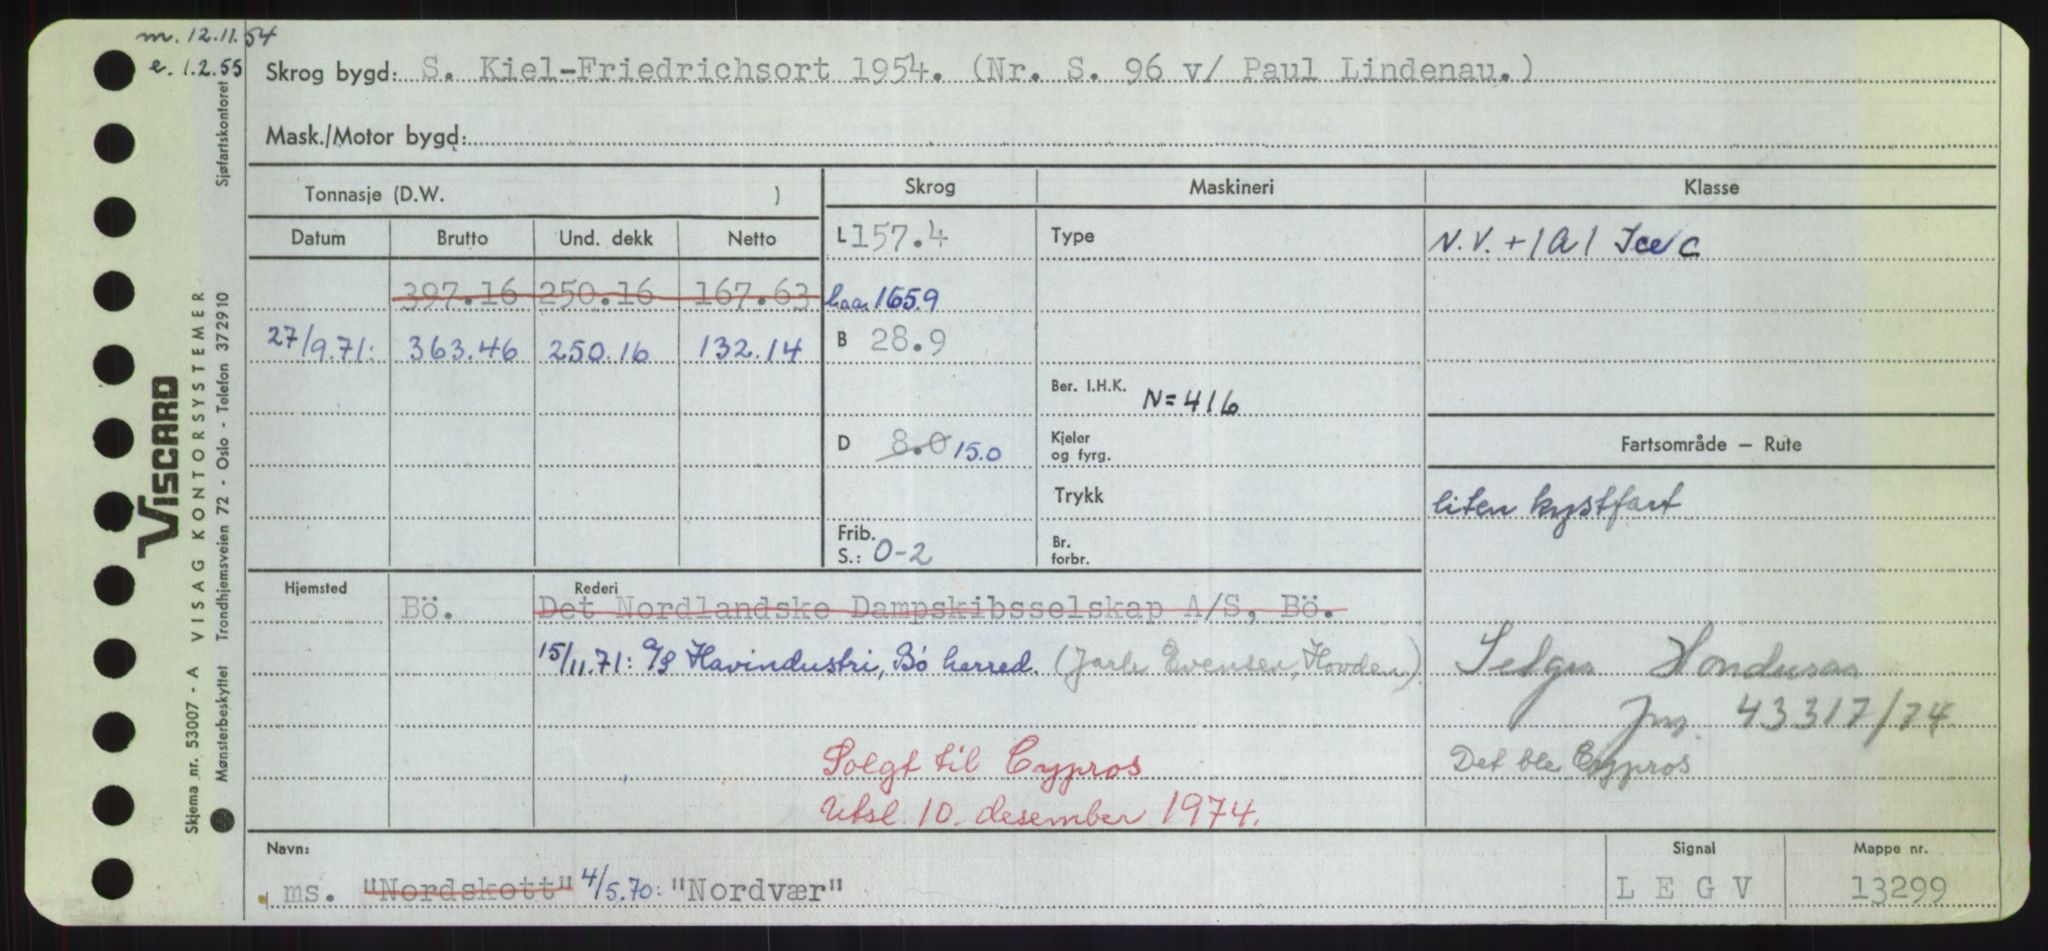 m. 12.11.54
e. 1.2.55
Skrog bygd: S. Kiel-Friedrichsort 1954. (Nr. S. 96 v/ Paul Lindenau.)
Mask./Motor bygd:
Tonnasje (D.W. )
Skrog Maskineri Klasse
Datum Brutto Und. dekk Netto
L 157.4 Type N.V. + 1A1 Ice C
397.16 250.16 167.63 Loa. 165.9
27/9.71: 363.46 250.16 132.14 B 28.9
Ber. I.H.K. N=416
D 8.0 15.0 Kjeler og fyrg. Fartsområde – Rute
Trykk liten kystfart
Frib.
S.: 0-2 Br. forbr.
Hjemsted Rederi
Bö. Det Nordlandske Dampskibsselskap A/S, Bö.
15/11.71: A/S Havindustri, Bö herred. (Jarle Evensen, Hovden) Selges Honduras
Jnr. 43317/74
Solgt til Cypros Det ble Cypros
Utsl. 10. desember 1974.
Navn: Signal Mappe nr.
ms. "Nordskott" 4/5.70: "Nordvær" L E G V 13299
VISCARD
Skjema nr. 53007 - A VISAG KONTORSYSTEMER
Mønsterbeskyttet Trondhjemsveien 72 - Oslo - Telefon 372910 Sjøfartskontoret